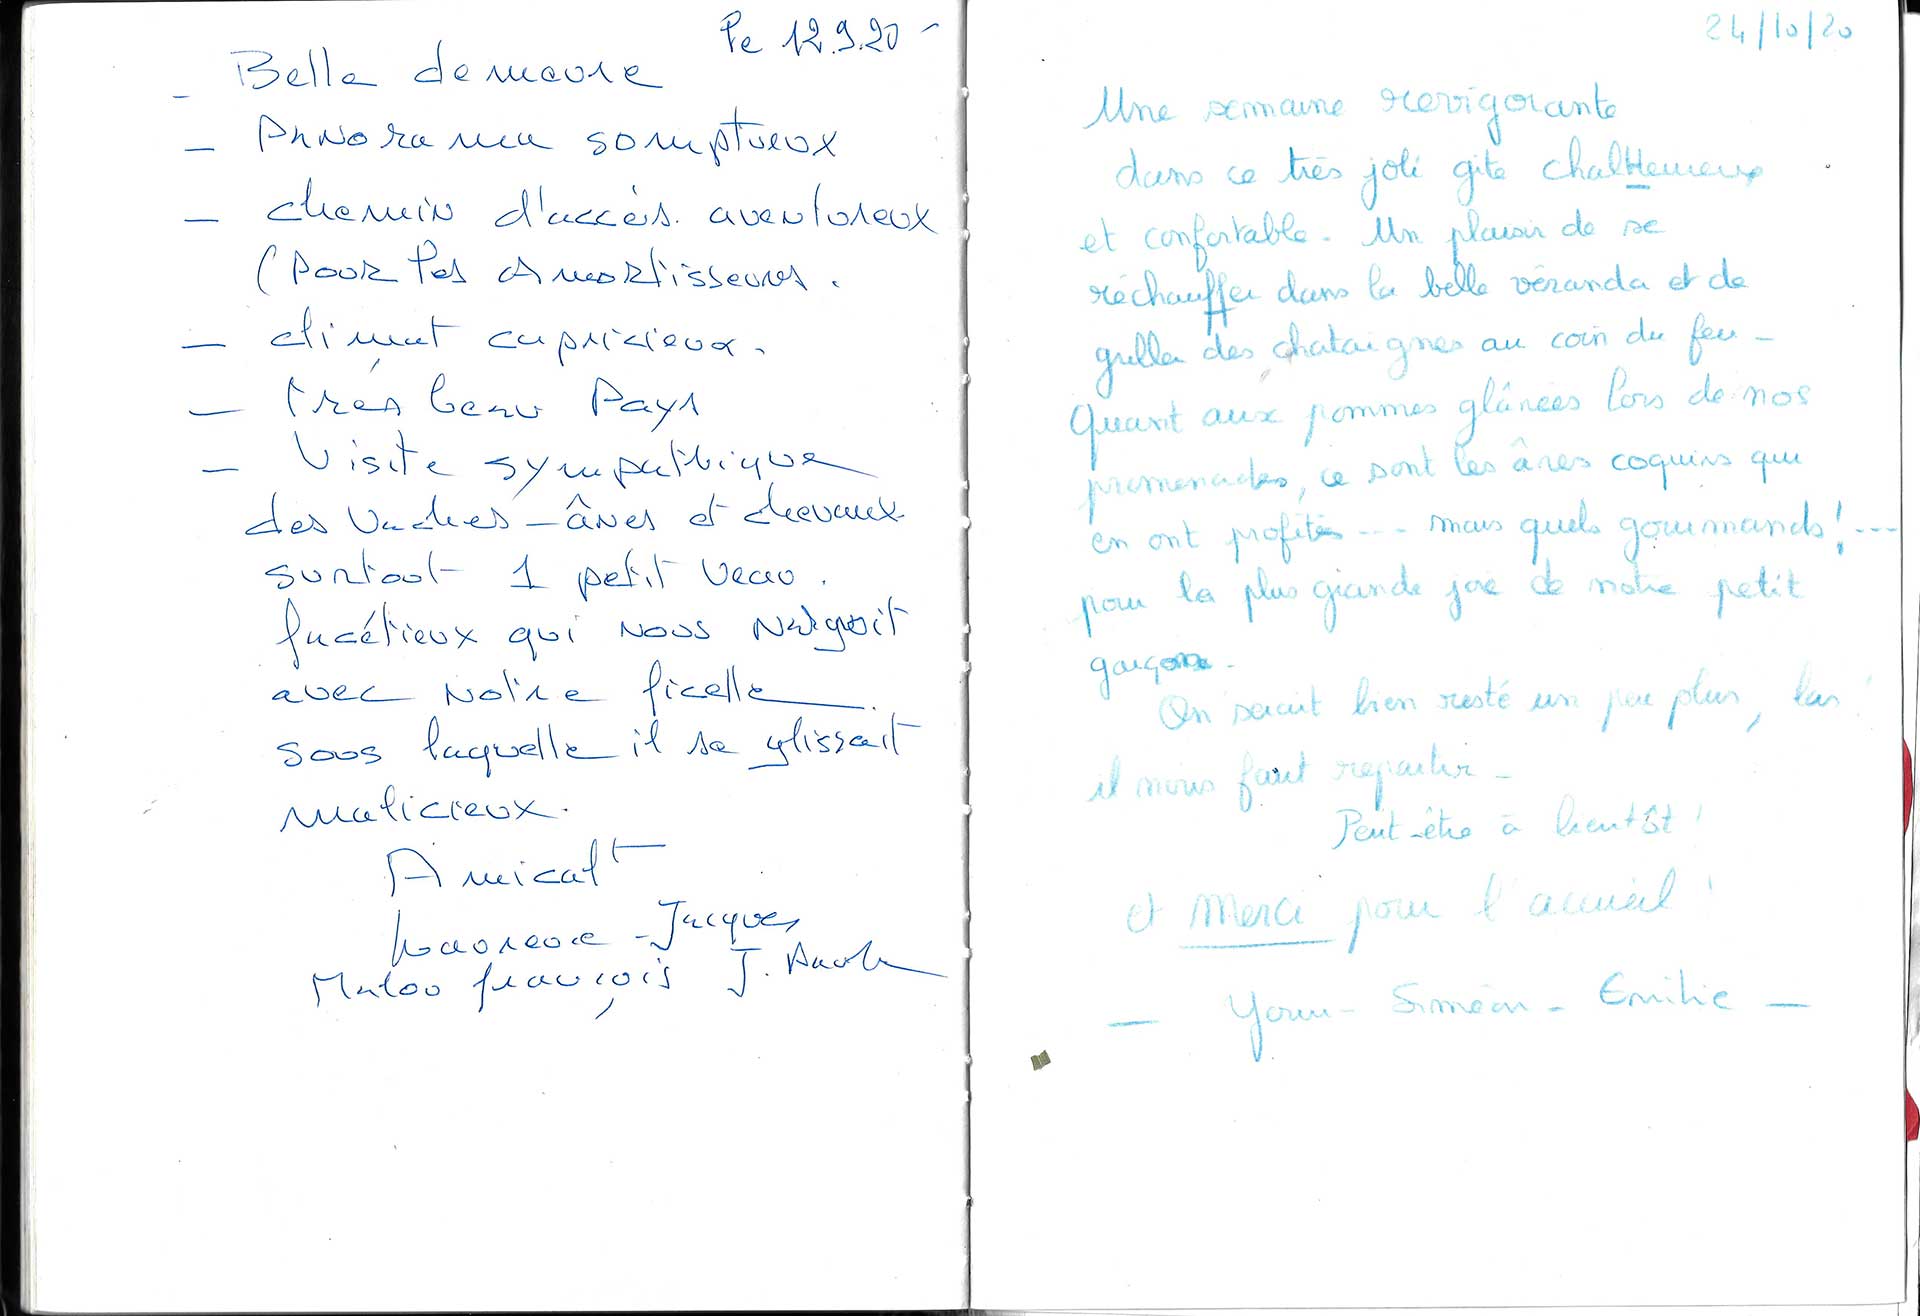 le 12.9.20
- Belle demeure
- Panorama somptueux
- chemin d'accès aventureux
(pour les amortisseurs.
- climat capricieux.
- très beau Pays
- Visite sympathique
des vaches - ânes et chevaux
surtout 1 petit veau.
facétieux qui nous narguait
avec notre ficelle
sous laquelle il se glissait
malicieux.
Amicalt
Laurence - Jacques
Malou françois J.
24/10/20
Une semaine revigorante
dans ce très joli gite chaleureux
et confortable. Un plaisir de se
réchauffer dans la belle véranda et de
griller des chataignes au coin du feu -
Quant aux pommes glânées lors de nos
promenades, ce sont les ânes coquins qui
en ont profités ... mais quels gourmands ! ...
pour la plus grande joie de notre petit
garçon.
On serait bien resté un peu plus, las !
il nous faut repartir -
Peut-être à bientôt !
et Merci pour l'accueil !
- Yann - Siméon - Emilie -